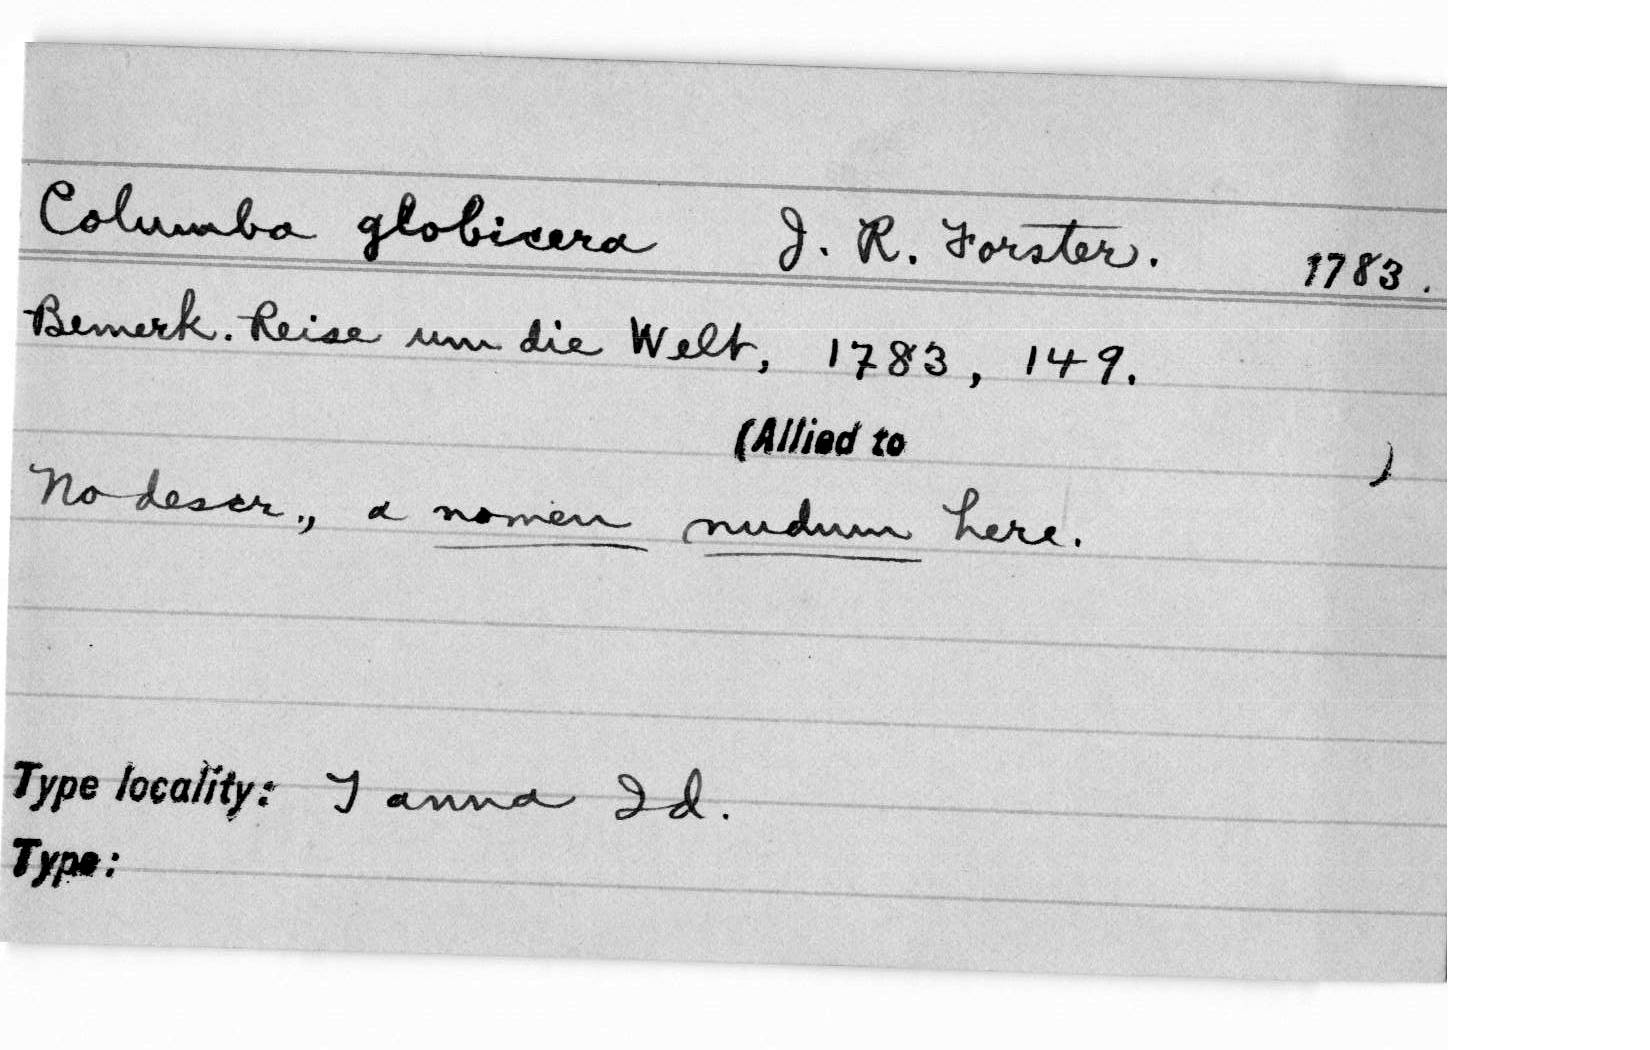 Columba globicera J. R. Forster. 1783.
Bemerk. Reise um die Welt, 1783, 149.
(Allied to )
No descr., a nomen nudum here.
Type locality: Tanna Id.
Type: